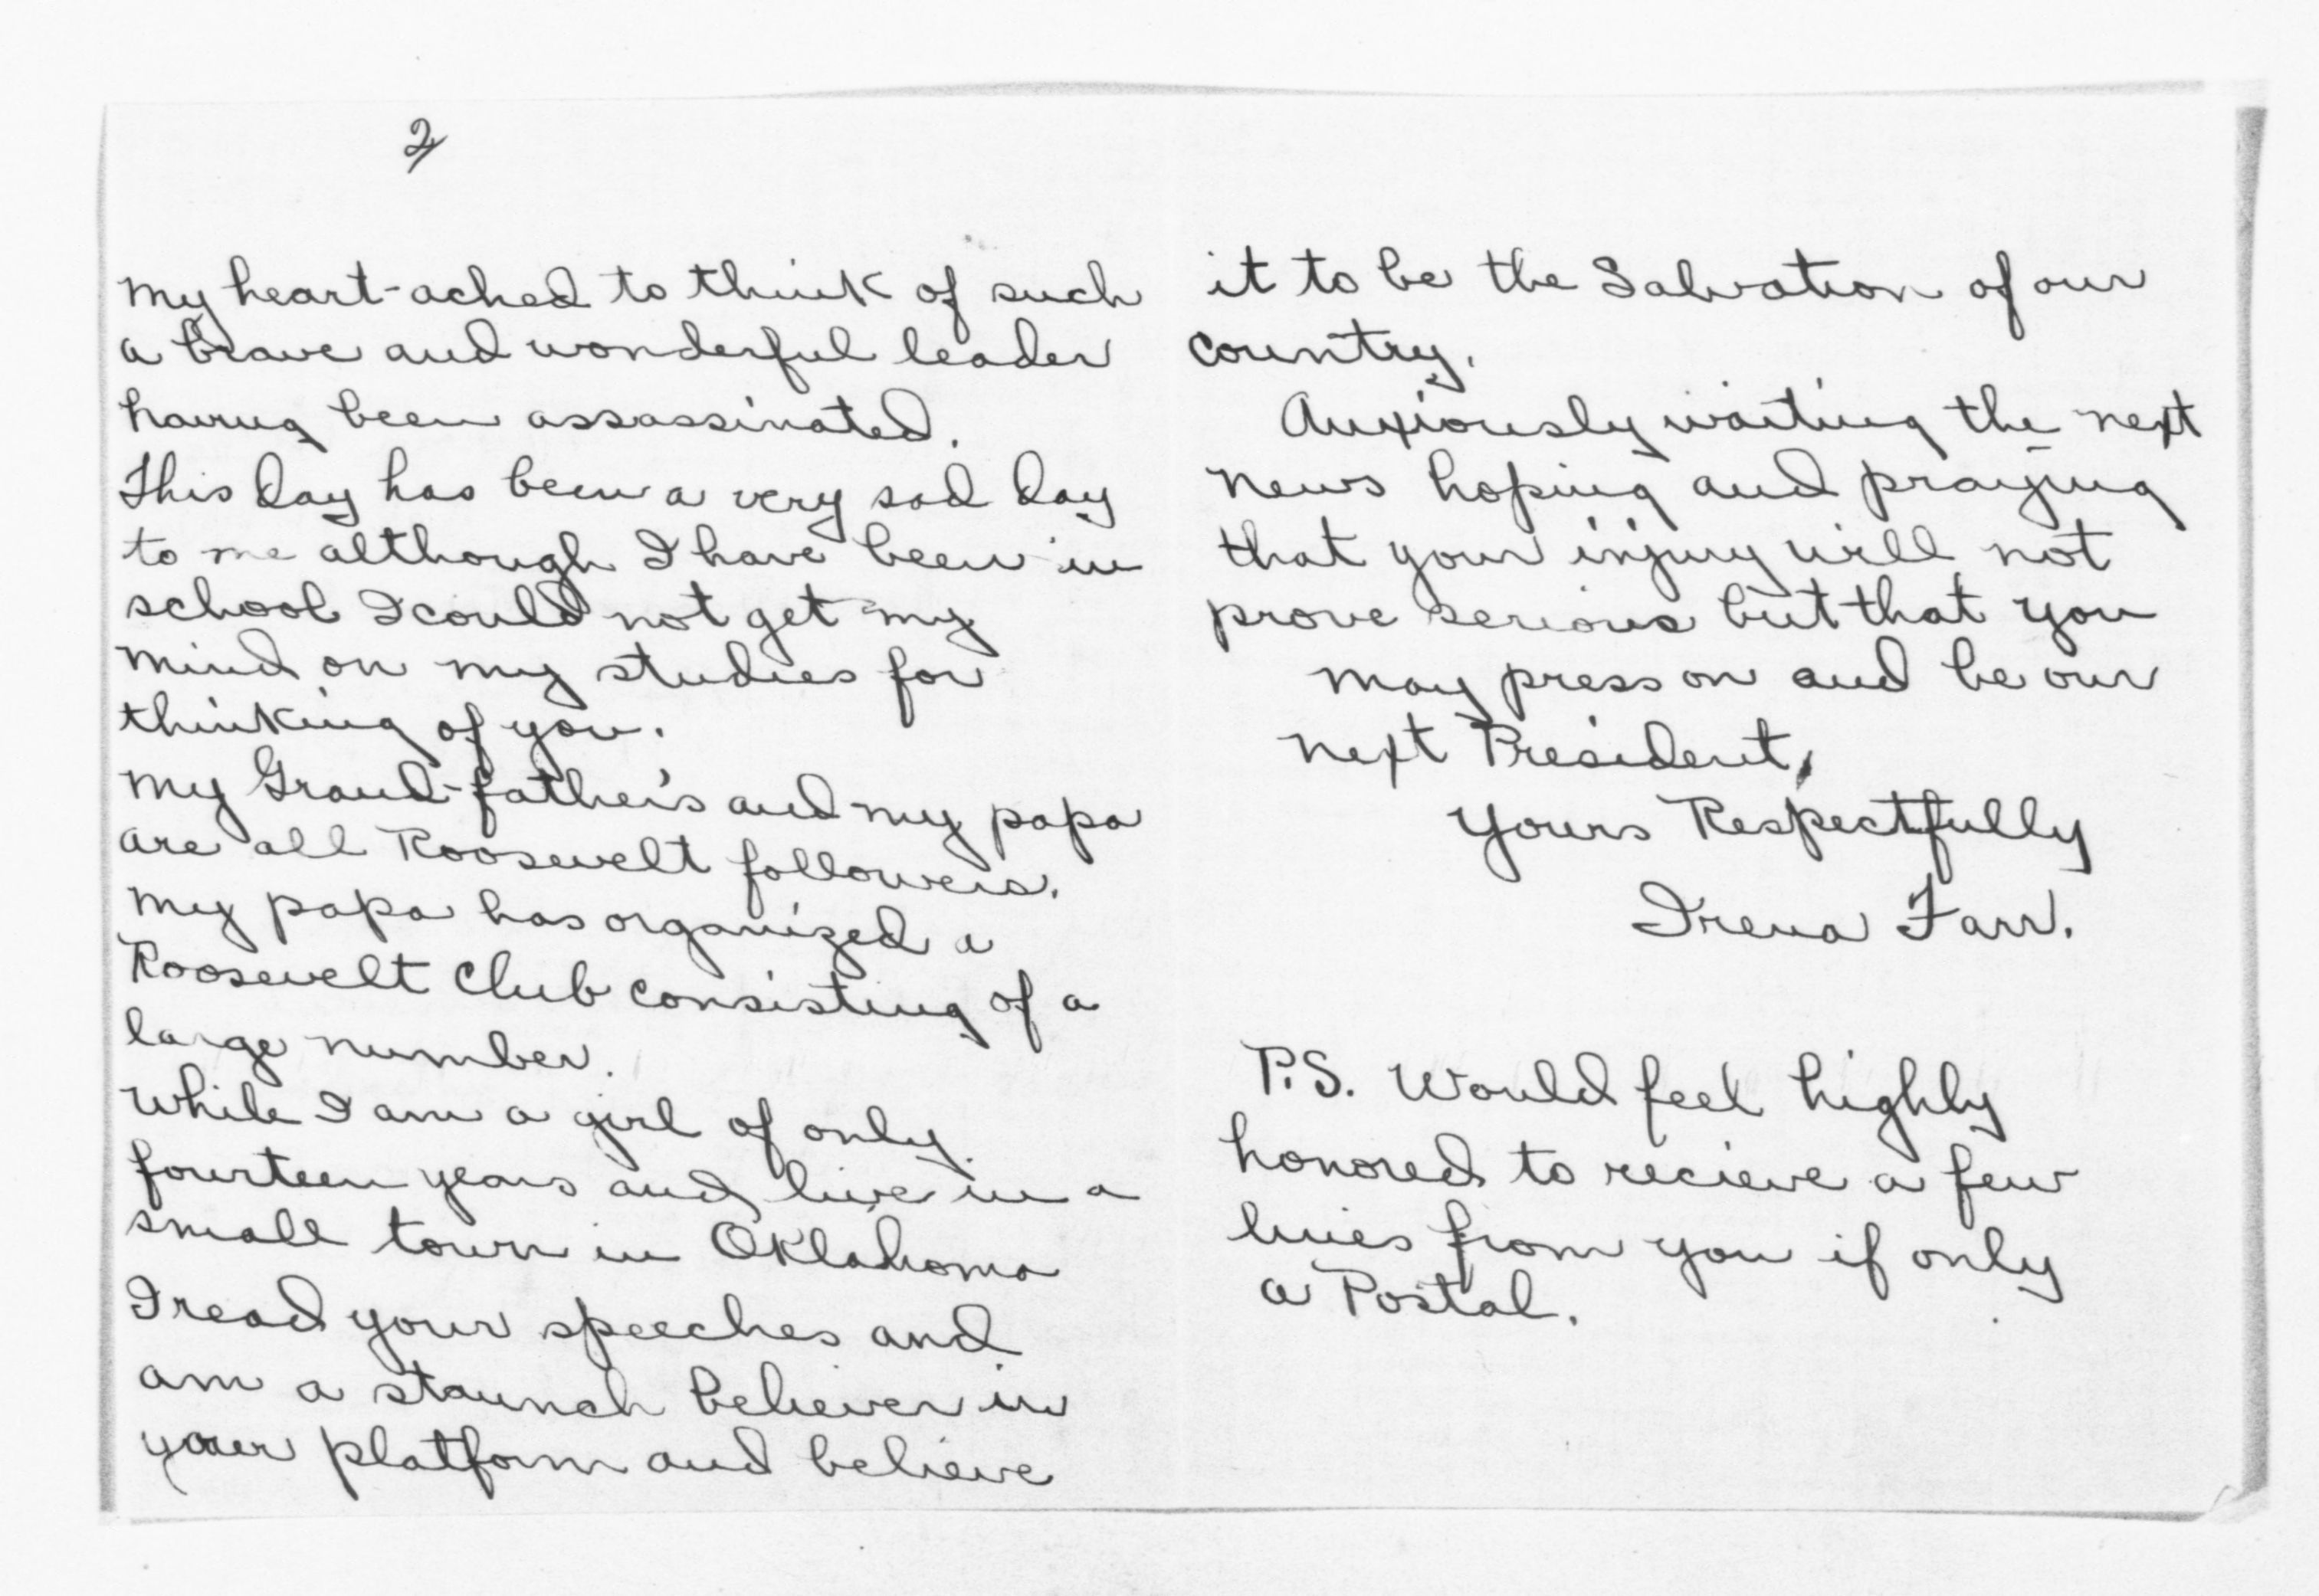 2
my heart-ached to think of such
a brave and wonderful leader
having been assassinated.
This day has been a very sad day
to me although I have been in
school I could not get my
mind on my studies for
thinking of you.
My Grand-father's and my papa
are all Roosevelt followers.
My papa has organized a
Roosevelt Club consisting of a
large number.
While I am a girl of only
fourteen years and live in a
small town in Oklahoma
I read your speeches and
am a staunch believer in
your platform and believe
it to be the Salvation of our
country.
Anxiously waiting the next
news hoping and praying
that your injury will not
prove serious but that you
may press on and be our
next President,
Yours Respectfully
Irena Farr.
P.S. Would feel highly
honored to recieve a few
lines from you if only
a Postal.